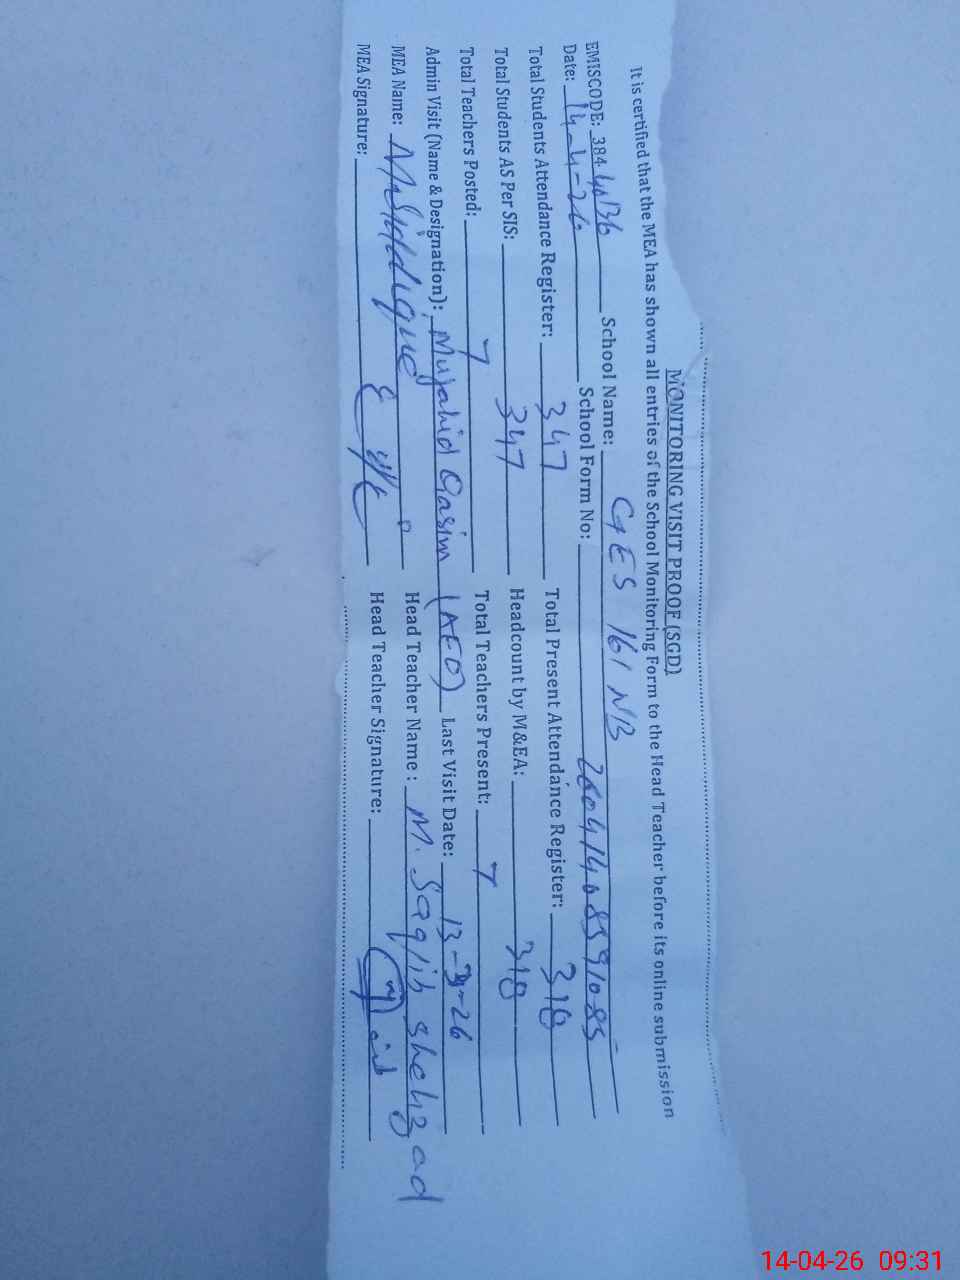 MONITORING VISIT PROOF (SGD)
It is certified that the MEA has shown all entries of the School Monitoring Form to the Head Teacher before its online submission
EMISCODE: 38440136 School Name: GES 161 NB
Date: 14-4-26 School Form No:
Total Students Attendance Register: 347 Total Present Attendance Register: 310
Total Students AS Per SIS: 347 Headcount by M&EA: 310
Total Teachers Posted: 7 Total Teachers Present: 7
Admin Visit (Name & Designation): Mujahid Qasim (AEO) Last Visit Date: 13-3-26
MEA Name: M. Siddique Head Teacher Name: M. Saqib shehzad
MEA Signature: Head Teacher Signature:
14-04-26 09:31